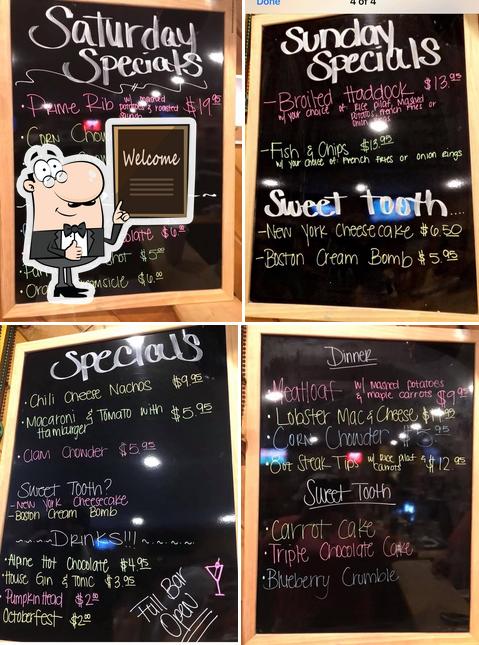 Saturday
Specials
• Prime Rib w/ mashed
potatoes & roasted
$19.95
• Corn Chow
Welcome
late $6.00
hot $5.00
msicle $6.00
Done
4 of 4
Sunday
Specials
- Broiled Haddock $13.95
w/ your choice of: Rice pilaf, Mashed
Potato, French fries or
onion rings
- Fish & Chips $13.95
w/ your choice of: French fries or onion rings
Sweet Tooth....
- New York Cheesecake $6.50
- Boston Cream Bomb $5.95
Special's
• Chili Cheese Nachos $9.95
• Macaroni & Tomato with $5.95
Hamburger
• Clam Chowder $5.95
Sweet Tooth?
- New York Cheesecake
- Boston Cream Bomb
~~~~DRINKS!!!~.~.~.
• Alpine Hot Chocolate $4.95
• House Gin & Tonic $3.95
• Pumpkin Head $2.00
• Octoberfest $2.00
Full Bar
Open
Dinner
• Meatloaf w/ mashed potatoes
& maple carrots $9.95
• Lobster Mac & Cheese
• Corn Chowder
• 8oz Steak Tips w/ Rice pilaf &
carrots $12.95
Sweet Tooth
• Carrot Cake
• Triple Chocolate Cake
• Blueberry Crumble